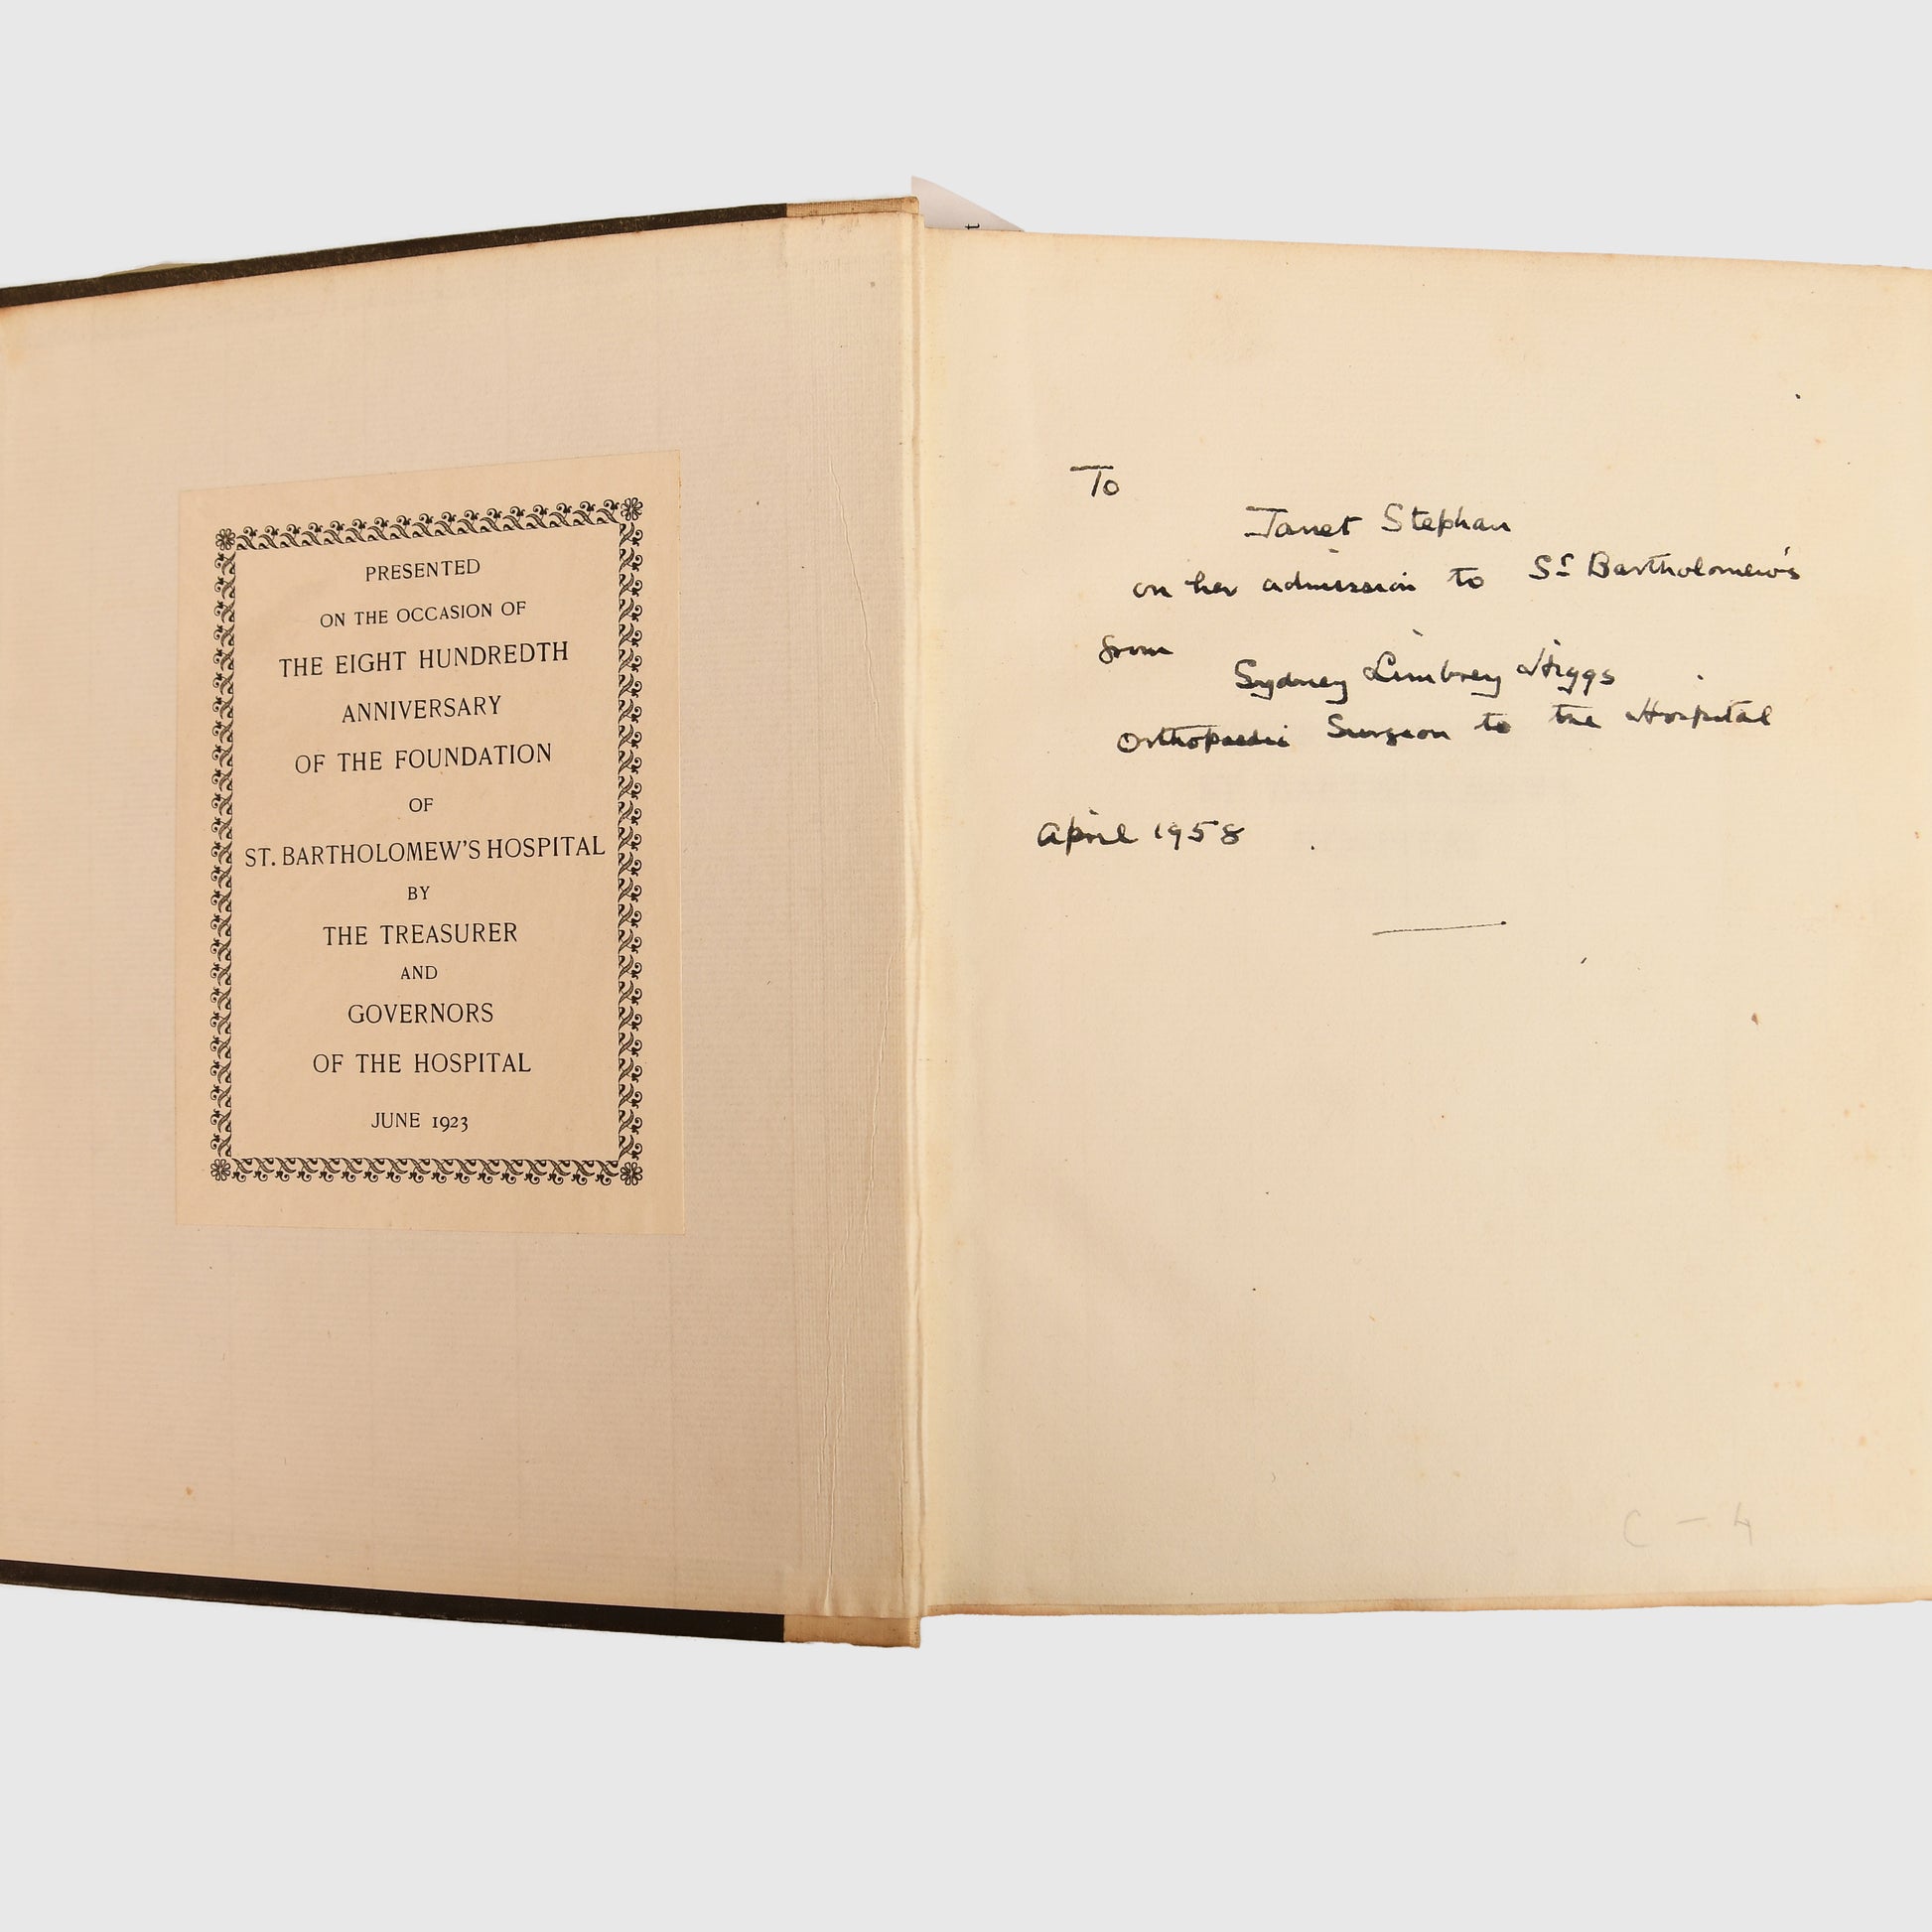 PRESENTED
ON THE OCCASION OF
THE EIGHT HUNDREDTH
ANNIVERSARY
OF THE FOUNDATION
OF
ST. BARTHOLOMEW'S HOSPITAL
BY
THE TREASURER
AND
GOVERNORS
OF THE HOSPITAL
JUNE 1923
t
To
Janet Stephan
on her admission to St Bartholomew's
from
Sydney Limbrey Higgs
Orthopaedic Surgeon to the Hospital
April 1958
C - 4